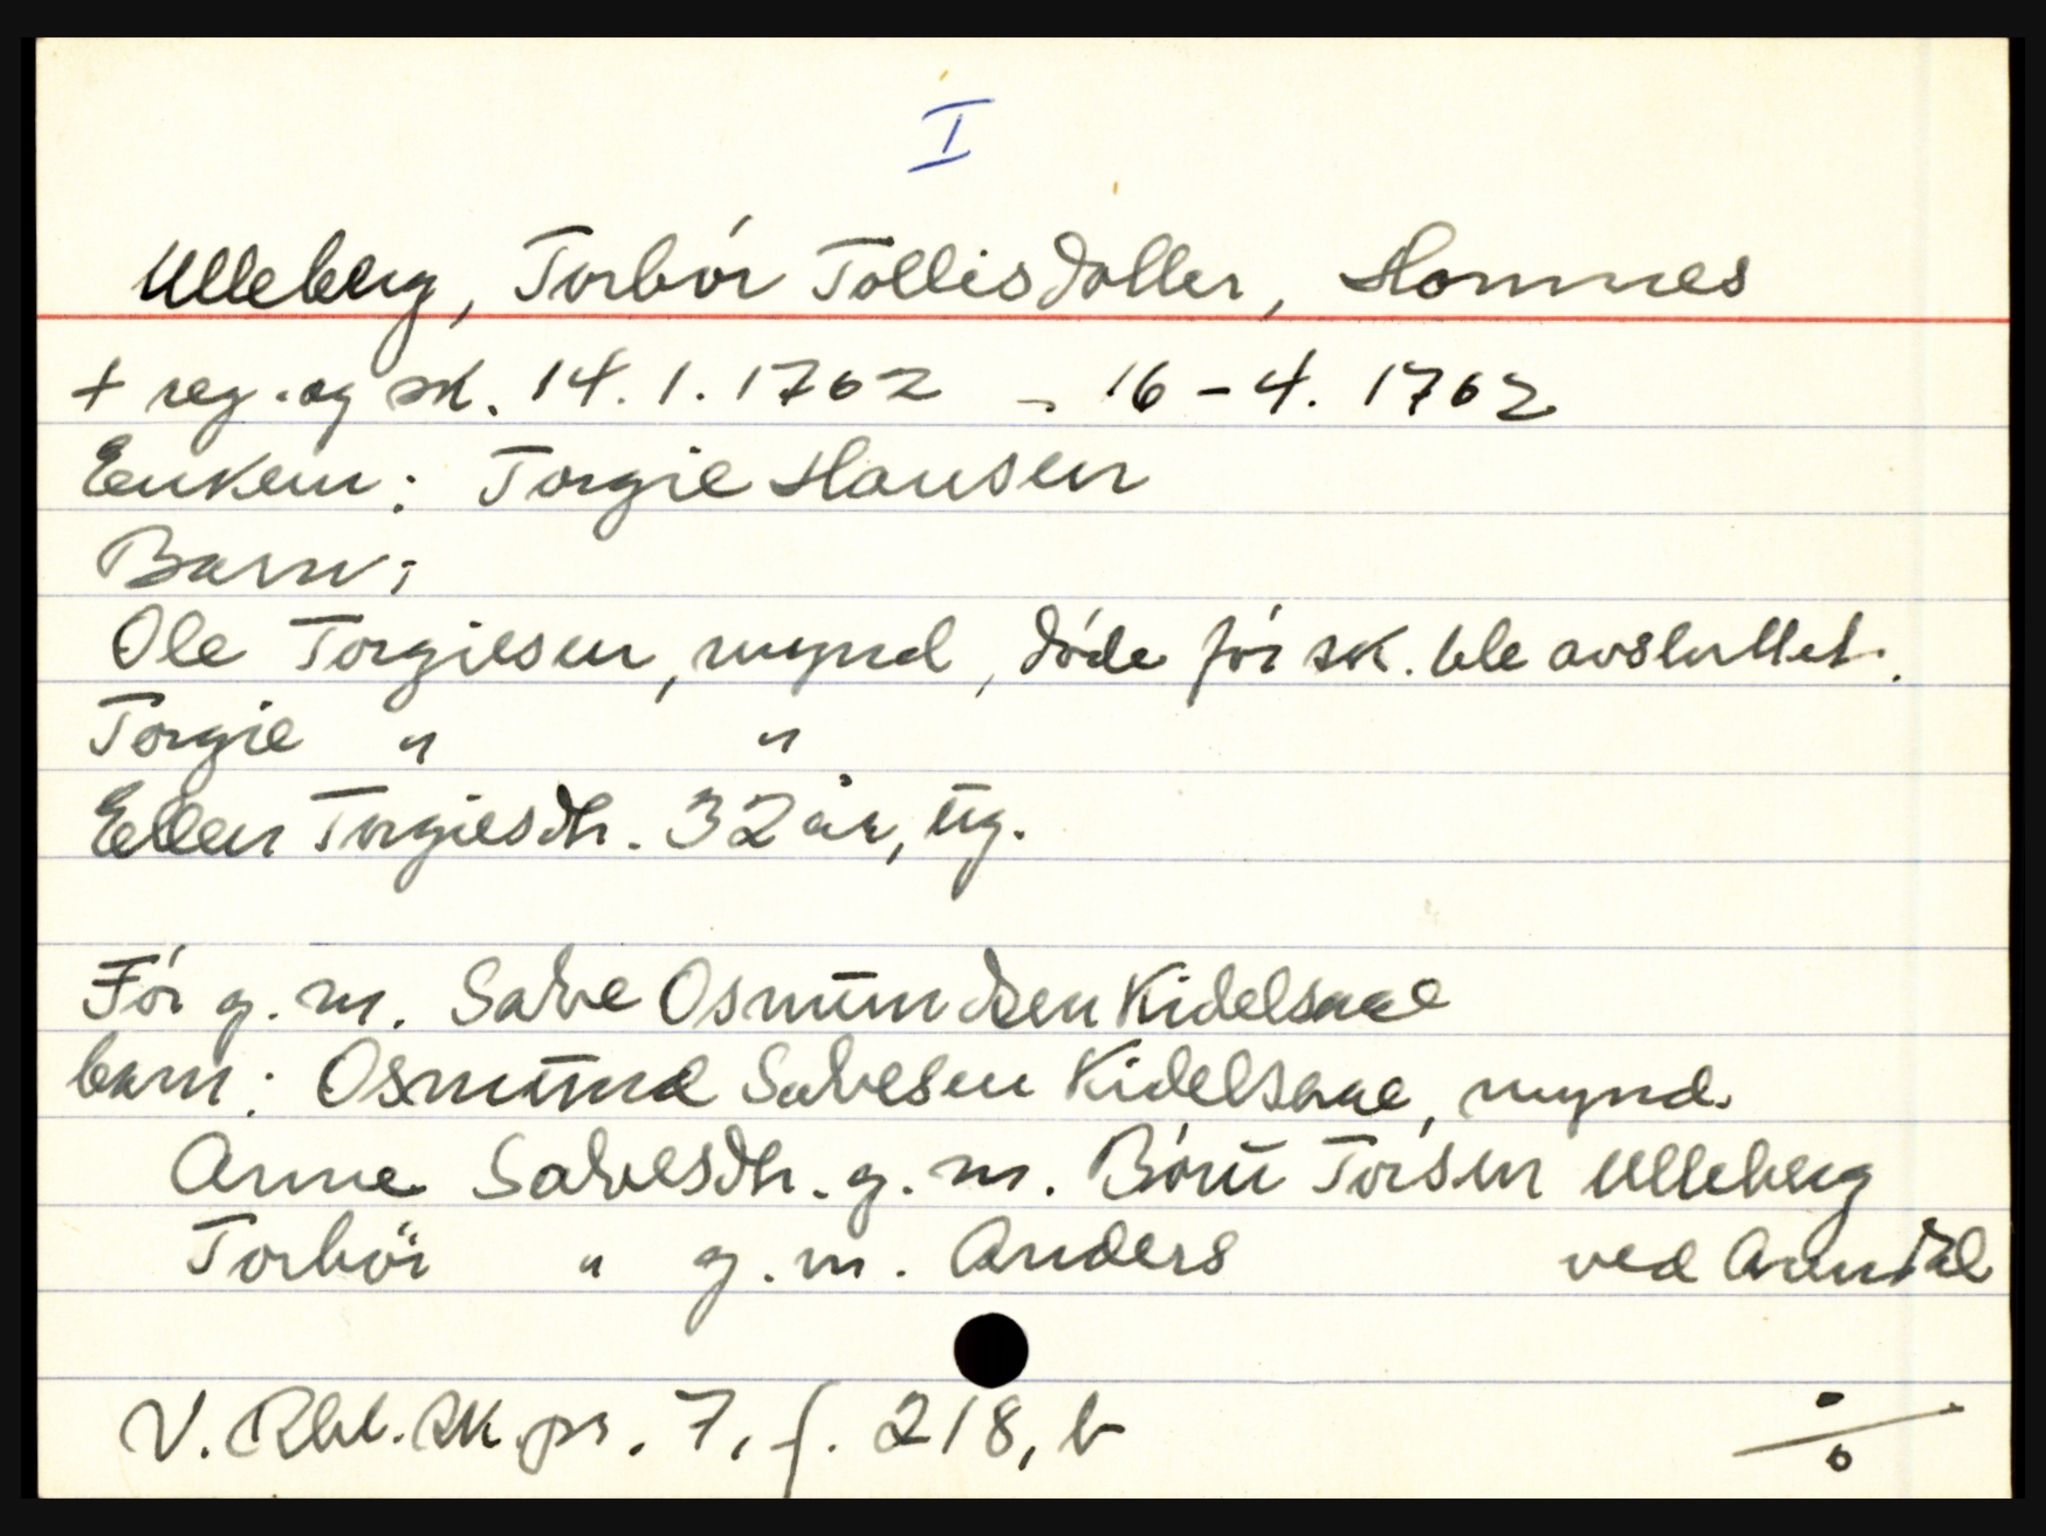 I
Ulleberg, Torbór Tollisdotter, Homnes
+ reg. og sk. 14.1.1762 - 16-4.1762
Enkem: Torgie Hansen
Barn:
Ole Torgiesen, mynd, døde før sk. ble avsluttet.
Torgie " "
Ellen Torgiesdtr. 32 år, ug.
Før g. m. Salve Osmundsen Kidelsaae
barn: Osmund Salvesen Kidelsaae, mynd.
Anne Salvesdtr. g. m. Børu Torsen Ulleberg
Torbør " g. m. Anders ved Arendal
V. Rbl. sk. pr. 7, f. 218, b